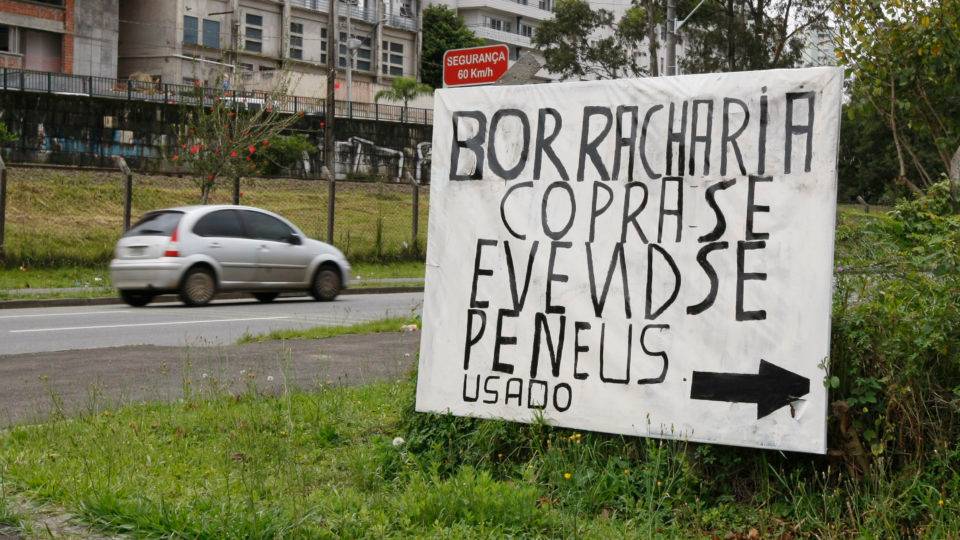 SEGURANÇA
60 Km/h
BORRACHARIA
COPRA-SE
EVEVDSE
PENEUS
USADO